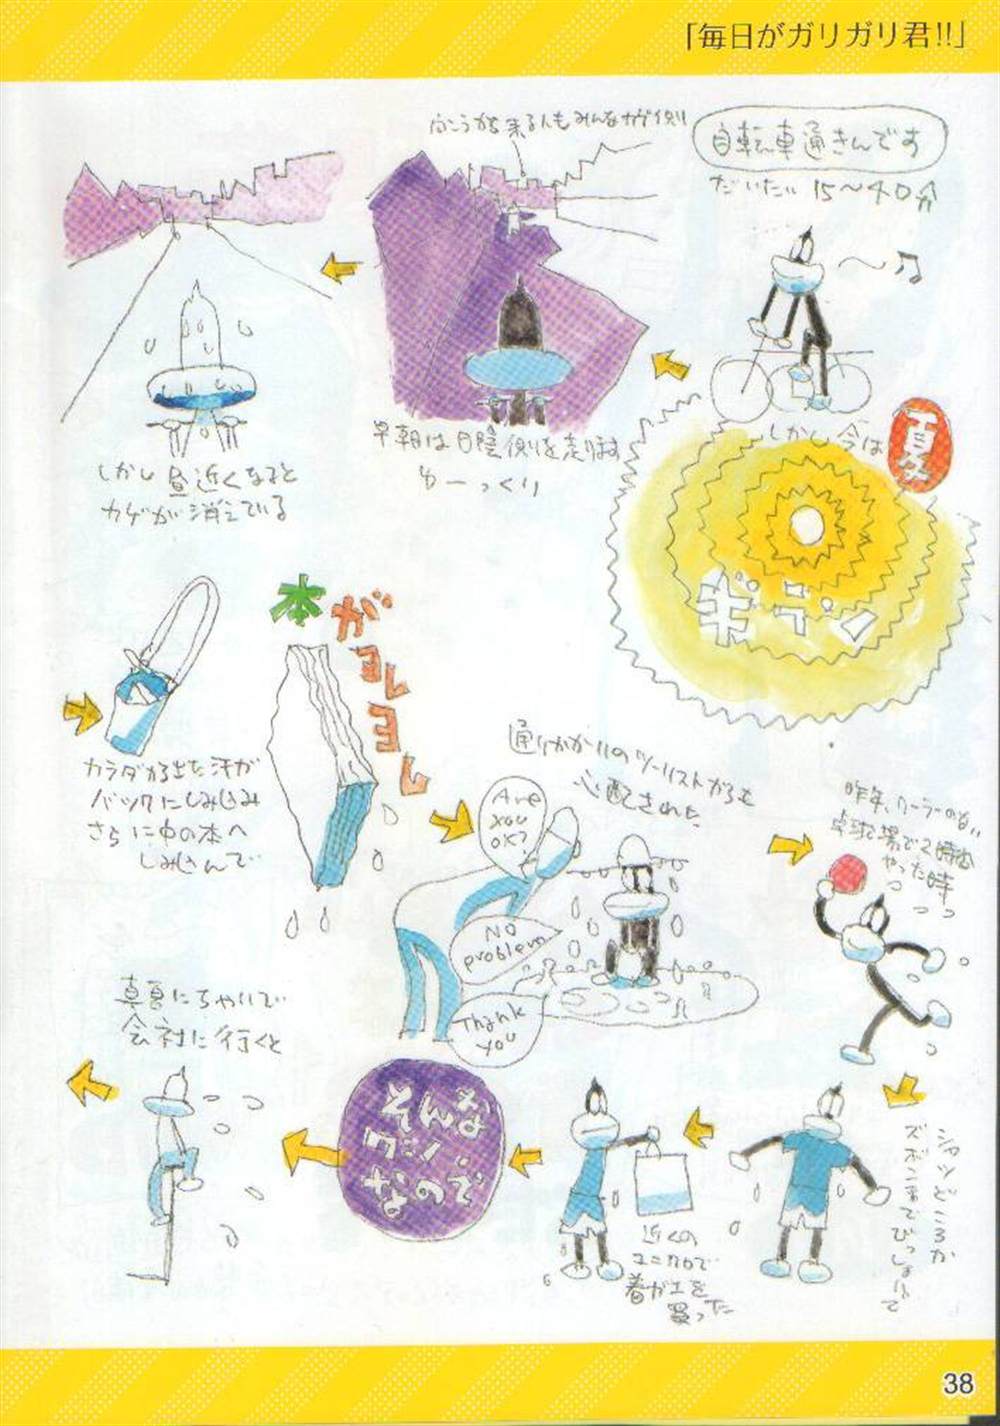 「毎日がガリガリ君!!」
自転車通きんです
だいたい 15〜40分
しかし今は
夏
ギラン
向こうから来る人もみんなカゲ側
早朝は日陰側を走ります
ゆーっくり
しかし昼近くなると
カゲが消えている
カラダから出た汗が
バックにしみ込み
さらに中の本へ
しみ込んで
本がヨレヨレ
通りがかりのツーリストからも
心配された
Are
you
OK?
NO
problem
Thank
you
昨年、クーラーのない
卓球場で2時間
やった時
シャツどころか
ズボンまでびっしょりで
近くの
ユニクロで
着がえを
買った
そんな
なので
真夏にちゃりで
会社に行くと
38